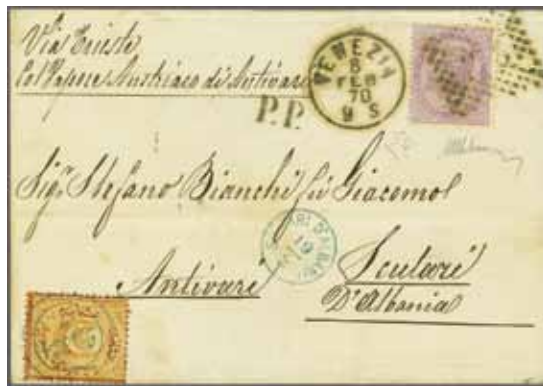 Via Trieste
Col Vapore Austriaco di Antivari
VENEZIA
8
FEB
70
9 S
P.P.
Sigr. Stefano Bianchi fu Giacomo
SCUTARI D'ALBANIA
19
Antivari
Scutari
D'Albania